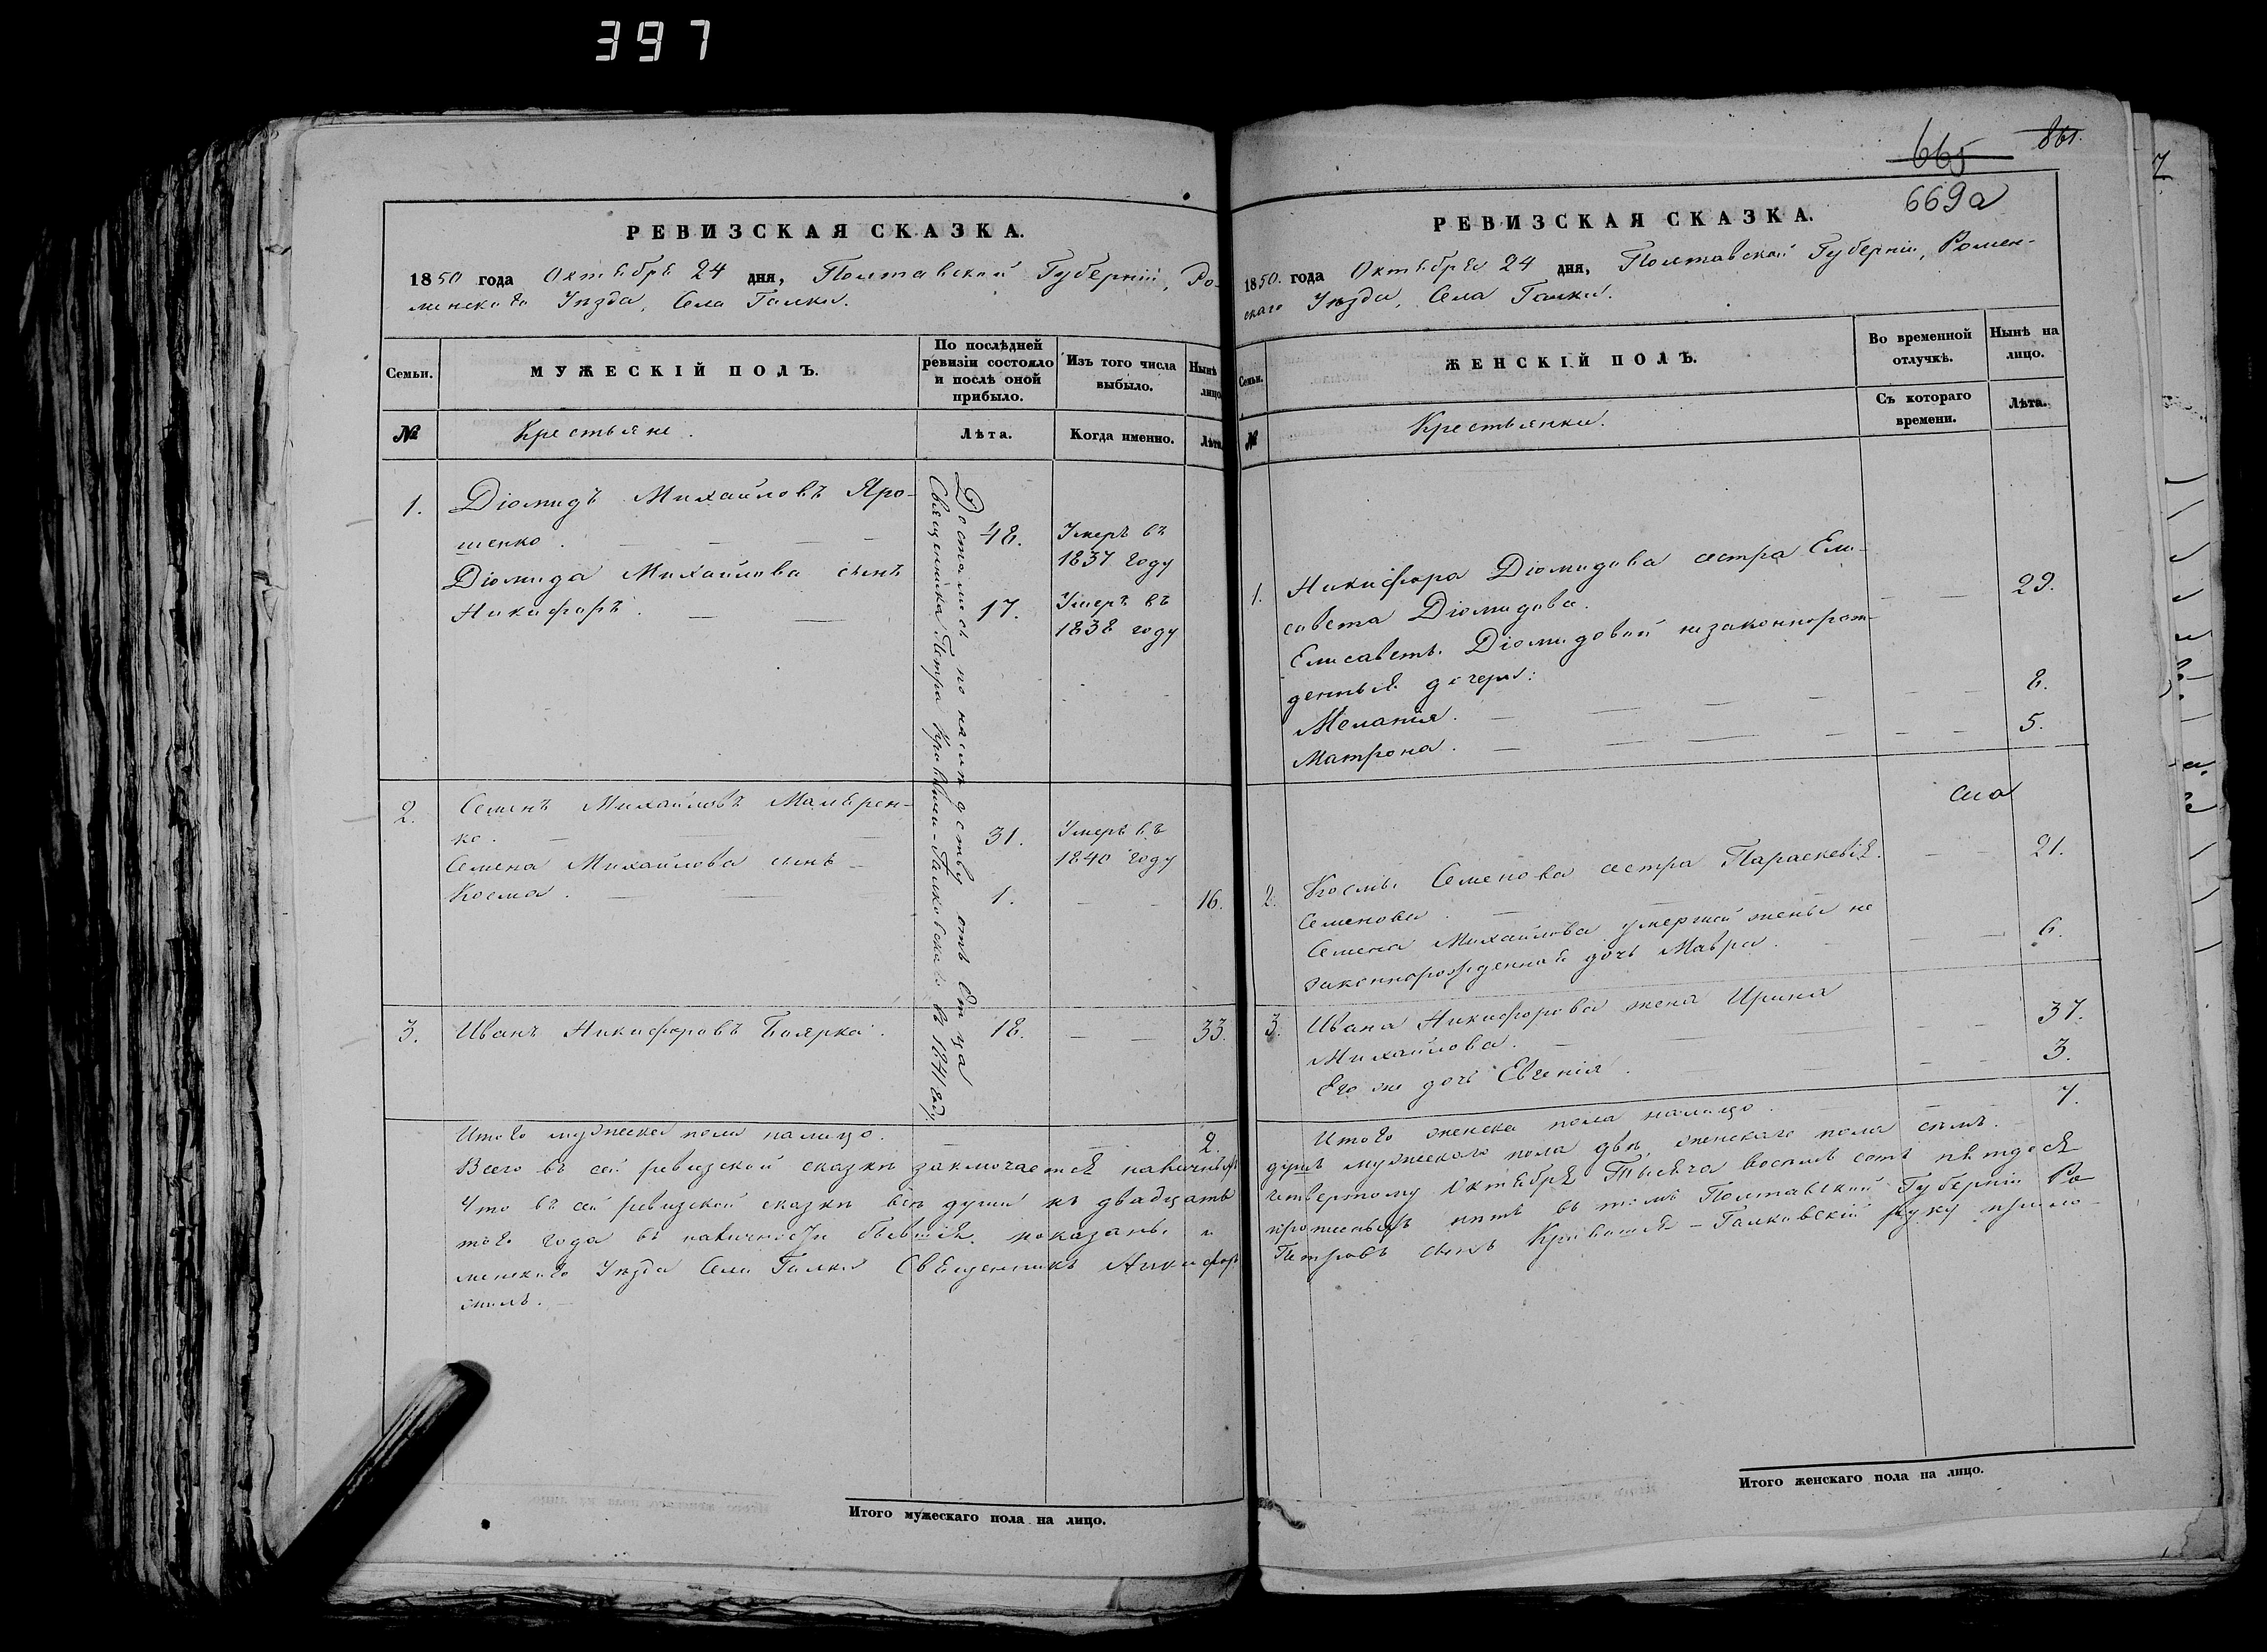 397
РЕВИЗСКАЯ СКАЗКА.
1850 года Октября 24 дня, Полтавской Губерніи, Ро-
менскаго Уѣзда, Села Галки.
Семьи.
МУЖЕСКІЙ ПОЛЪ.
По послѣдней
ревизіи состояло
и послѣ оной
прибыло.
Изъ того числа
выбыло.
Нынѣ
лицо
№
Крестьяне.
Лѣта.
Когда именно.
Лѣта
1. Діомидъ Михайловъ Яро-
шенко. 48. Умеръ въ
1837 году
Діомида Михайлова сынъ
Никифоръ. 17. Умеръ въ
1838 году
2. Семенъ Михайловъ Малярен-
ко. 31. Умеръ въ
1840 году
Семена Михайлова сынъ
Косма. 1. 16.
3. Иванъ Никифоровъ Боярка. 18. 33.
Достались по наслѣдству отъ Отца
Священника Петра Кривуши-Галковскаго въ 1841 году.
Итого мужеска пола налицо. 2.
Всего въ сей ревизской сказкѣ заключается наличныхъ
Что въ сей ревизской сказкѣ всѣ души къ двадцать
того года въ наличности бывшія показаны и
менскаго Уѣзда Села Галки Священникъ Никифоръ
жилъ.
Итого мужескаго пола на лицо.
665
861.
669а
РЕВИЗСКАЯ СКАЗКА.
1850. года Октября 24 дня, Полтавской Губерніи, Ромен-
скаго Уѣзда, Села Галки.
Семьи.
ЖЕНСКІЙ ПОЛЪ.
Во временной
отлучкѣ.
Нынѣ на
лицо.
№
Крестьянки.
Съ котораго
времени.
Лѣта.
1. Никифора Діомидова сестра Ели-
савета Діомидова. 29.
Елисаветы Діомидовой незаконнорож-
денныя дочери:
Меланія. 8.
Матрона. 5.
2. Космы Семенова сестра Параскевія
Семенова. 21.
Семена Михайлова умершей жены не
законнорожденная дочь Мавра. 6.
3. Ивана Никифорова жена Ирина
Михайлова. 37.
Его же дочь Евгенія. 3.
Итого женска пола налицо. 7.
душъ мужескаго пола двѣ женскаго пола семь.
четвертому Октября Тысяча восемь сотъ пятдеся
въ томъ Полтавской Губерніи Ро
Петровъ сынъ Кривуша-Галковскій руку прило-
Итого женскаго пола на лицо.